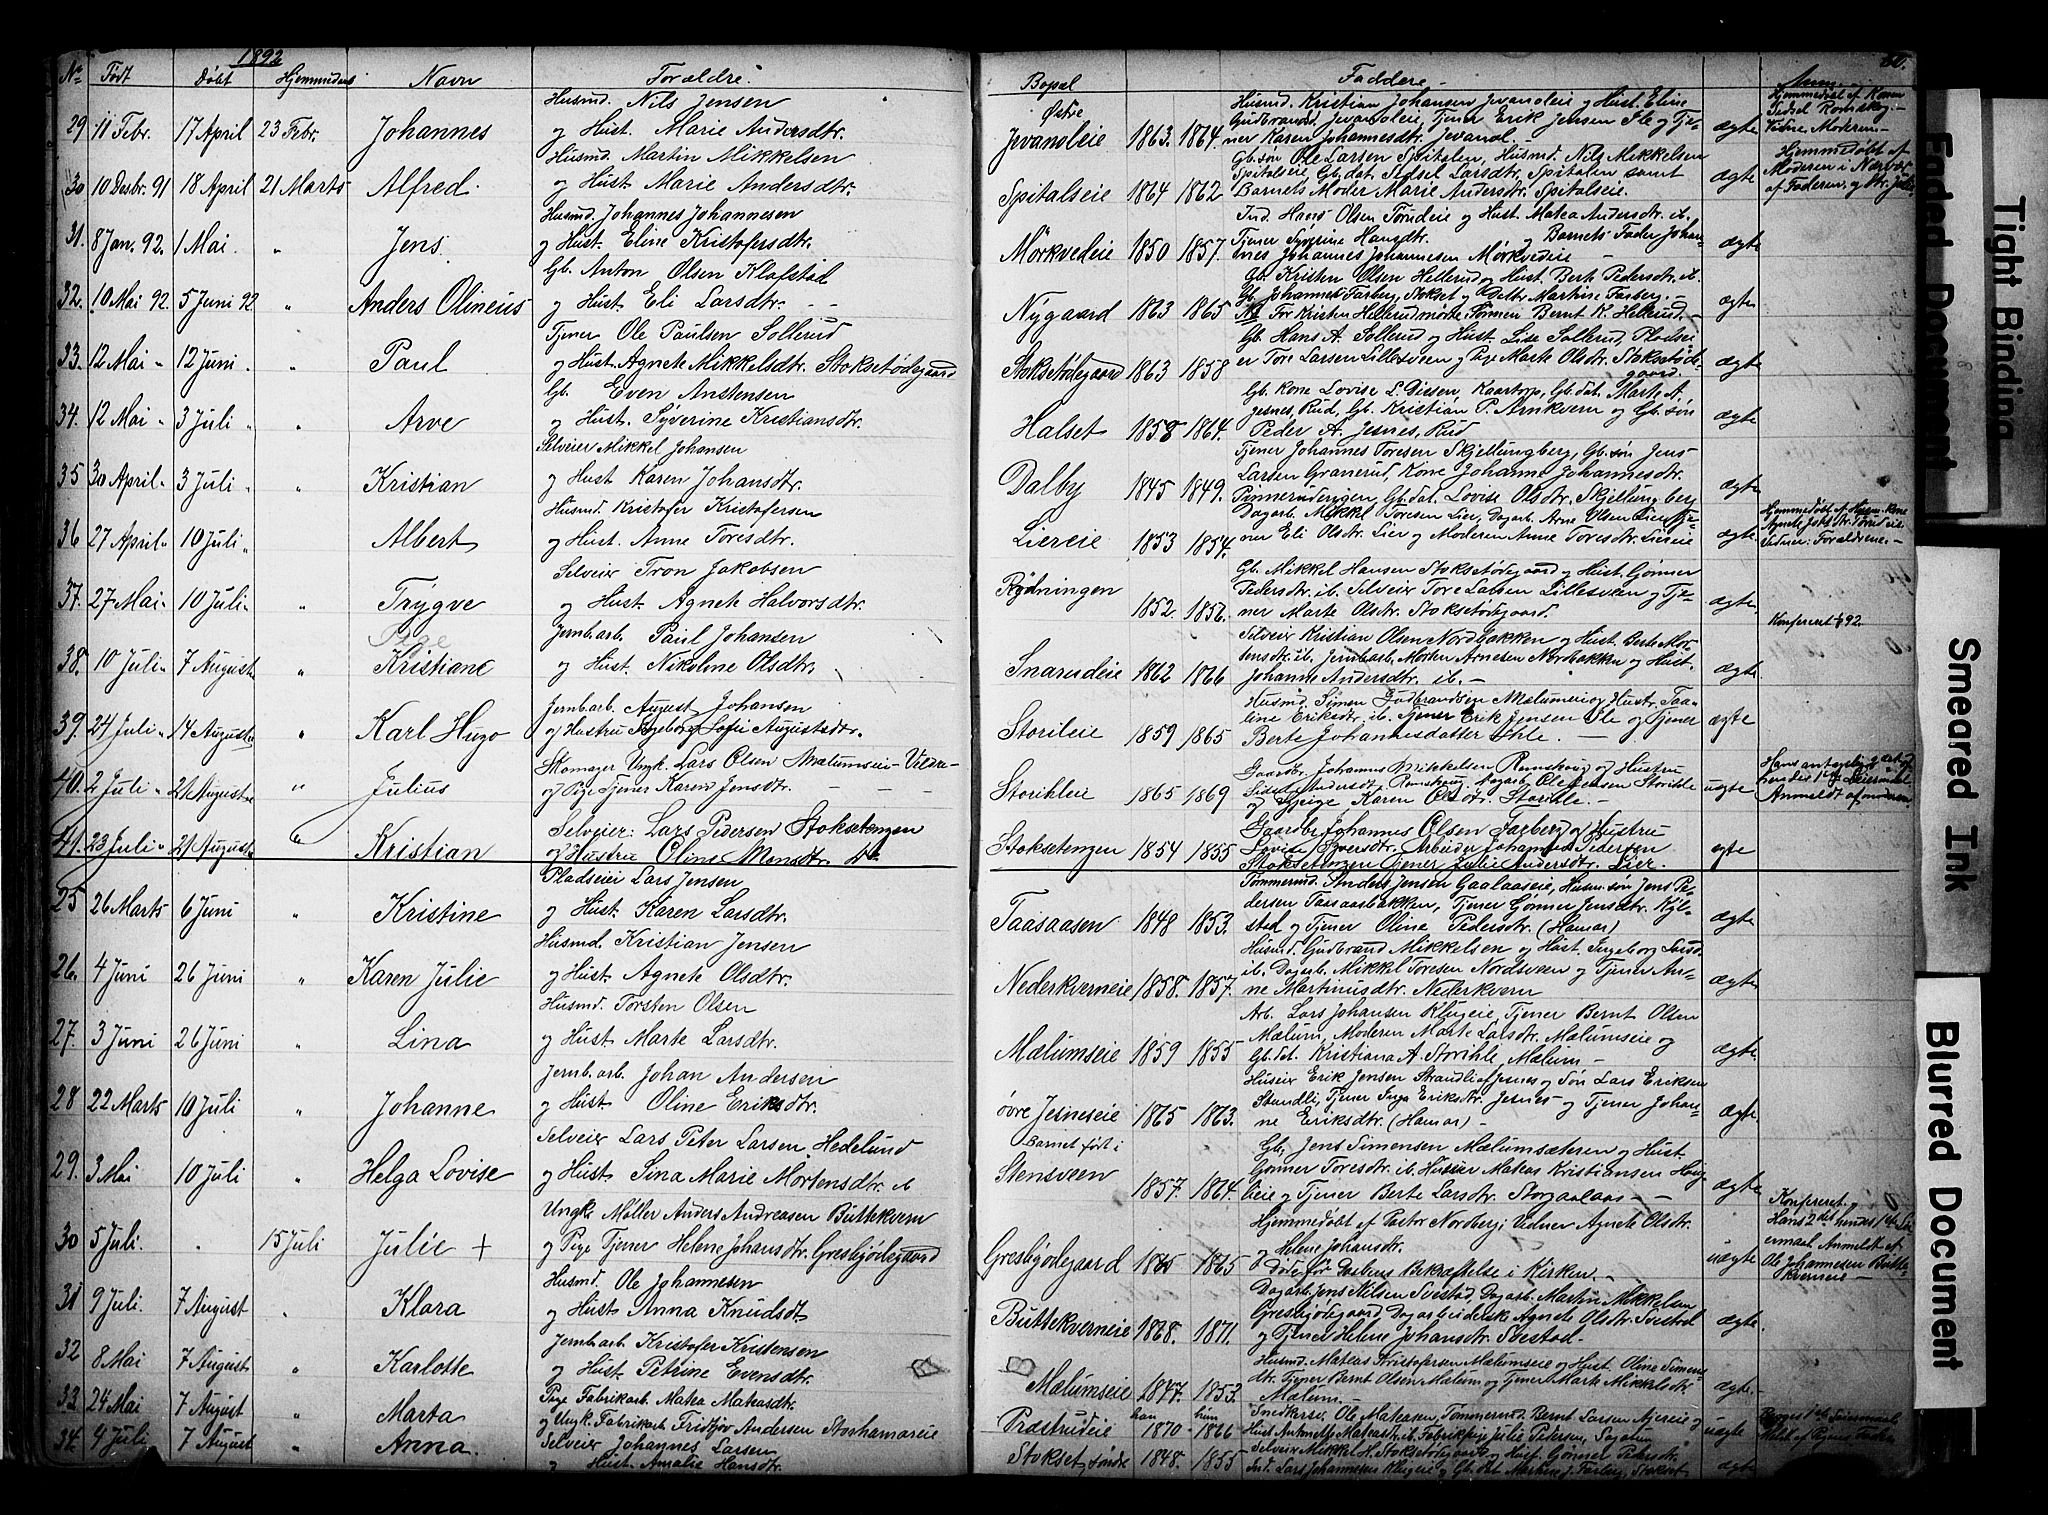 1892
No Født Døbt Hjemmedøbt Navn Forældre. Bopæl Faddere. Anm. 60.
29 11 Febr. 17 April 23 Febr. Johannes Husmd. Nils Jensen
og Hust. Marie Andersdtr. Østre Jevanoleie 1863. 1864. ægte
Husmd. Kristian Johansen Jevanoleie og Hust. Eline
Gudbrandsd. Jevanoleie, Tjener Erik Jensen Ile og Tje-
ner Karen Johannesdtr. Jevanol.
Hjemmedøbt af Konen
Sidsel Romskog.
Vidne Moderen.
30 10 Desbr. 91 18 April 21 Marts Alfred. Husmd. Martin Mikkelsen
og Hust. Marie Andersdtr. Spitalseie 1864 1862 ægte
Gb. søn Ole Larsen Spitalen, Husmd. Nils Mikkelsen
Spitalseie, Gb. dat. Sidsel Larsdtr. Spitalen samt
Barnets Moder Marie Andersdtr. Spitalseie.
Hjemmedøbt af
Moderen i Nærvær
af Faderen og Str. Julie
31. 8 Jan. 92. 1 Mai " Jens Husmd. Johannes Johannesen
og Hust. Eline Kristofersdtr. Mörkvedeie 1850 1857. ægte
Ind. Hans Olsen Torudeie og Hust. Matea Andersdtr. ib.
Tjener Syverine Hansdtr. og Barnets Fader Johan-
nes Johannesen Mörkvedeie —
32. 10 Mai 92 5 Juni 92 " Anders Olineius Gb. Anton Olsen Klafstad
og Hust. Eli Larsdtr. - - Nygaard 1863 1865 ægte
Gb. Kristen Olsen Hellerud og Hust. Bert. Pedersdtr. ib.
Gb. Johannes Farberg, Stokset og Dattr Martine Farberg. -
NB For Kristen Hellerud mødte Sønnen Bernt K. Hellerud. -
33. 12 Mai " 12 Juni " " Paul Tjener Ole Paulsen Sollerud
og Hust. Agnete Mikkelsdtr. Stoksetødegaard Stoksetødegaard 1863 1858 ægte
Gb. Hans A. Sollerud og Hust. Lise Sollerud, Pladsei-
er Tore Larsen Lillesveen og Pige Marte Olsdtr. Stoksetøde-
gaard.
34. 12 Mai " 3 Juli " " Arve Gb. Even Anstensen
og Hust. Syverine Kristiansdtr. Halset 1858 1864. ægte
Gb. kone Lovise L. Dissen, Kaartorp, Gb. dat. Marte A.
Jesnes, Rud, Gb. Kristian P. Arnkvern og Gb. søn
Peder A. Jesnes, Rud
35 30 April " 3 Juli " " Kristian Selveier Mikkel Johansen
og Hust Karen Johansdtr. Dalby 1845 1849. ægte
Tjener Johannes Toresen Skjellungberg, Gb. søn Jens
Larsen Granerud, Kone Johanne Johannesdtr.
Pinnerudengen, Gb. dat. Lovise Olsdtr. Skjellungberg
36 27 April " 10 Juli " " Albert Husmd. Kristofer Kristofersen
og Hust. Anne Toresdtr. Liereie 1853 1854. ægte
Dagarb. Mikkel Toresen Lier, Dagarb. Arne Olsen Lier, Tje-
ner Eli Olsdtr. Lier og Moderen Anne Toresdtr. Liereie
Vidner: Forældrene. -
37. 27 Mai " 10 Juli " " Trygve Selveier Tron Jakobsen
og Hust. Agnete Halvorsdtr. Rydningen 1852. 1856. ægte
Gb. Mikkel Hansen Stoksetødegaard og Hust. Gønner
Pedersdtr. ib. Selveier Tore Larsen Lillesveen og Tje-
ner Marte Olsdtr. Stoksetødegaard.
38. 10 Juli " 7 August " Pige Kristiane Jernb. arb. Paul Johansen
og Hust. Nikoline Olsdtr. Snarudeie 1862 1866 ægte
Selveier Kristian Olsen Nordbakken og Hust. Berte Mor-
tensdtr. ib. Jernbarb. Morten Arnesen Nordbakken og Hust.
Johanne Andersdtr. ib. -
39. 24 Juli " 14 August " Karl Hugo Jernb arb. August Johansen
og Hustru Ingeborg Sofie Augustsdtr. Storileie 1859 1865 ægte
Husmd. Simen Gudbrandsen Mælumseie og Hustr. Taa-
line Eriksdtr. ib. Tjener Erik Jensen Ile og Tjener
Berte Johannesdatter Ihle. —
40. 2 Juli " 21 August " Julius Skomager Ungk. Lars Olsen Mælumseie - Vildre -
og Pige Tjener Karen Jensdtr. — — — Storihleie 1865 1869 uægte
Gaardbr. Johannes Mikkelsen Romskoug og Hustru
og Pige Karen Olsdtr. Storihle. -
Anmeldt af moderen
41. 23 Juli " 21 August " Kristian Selveier: Lars Pedersen Stoksetengen
og Hustru Oline Monsdtr. do. Stoksetengen 1854 1855 ægte
Gaardbr. Johannes Olsen Farberg og Hustru
Lovise Iversdtr. Arbeider Johannes Pedersen
Stoksetengen Tjener Julie Andersdtr. Lier.
25 26 Marts 6 Juni " Kristine Pladseier Lars Jensen
og Hust. Karen Larsdtr. Taasaasen 1848 1853. ægte
Tømmermd. Anders Jensen Gaalaaseie, Husm. søn Jens Pe-
dersen Taasaasbakken, Tjener Gønner Jensdtr. Kyl-
stad og Tjener Oline Pedersdtr. (Hamar)
26. 4 Juni 26 Juni " Karen Julie Husmd. Kristian Jensen
og Hust. Agnete Olsdtr. Nederkverneie 1858. 1857. ægte
Husmd. Gudbrand Mikkelsen og Hust. Ingeborg Larsd.
ib. Dagarb. Mikkel Toresen Nordsveen og Tjener An-
ne Martinusdtr. Nederkvern
27. 3 Juni 26 Juni " Lina Husmd. Torsten Olsen
og Hust. Marte Larsdtr. Mælumseie 1859 1855 ægte
Arb. Lars Johansen Klugeie, Tjener Bernt Olsen
Mælum, Moderen Marte Larsdtr. Mælumseie og
Gb. dat. Kristiana A. Storihle, Mælum -
28 22 Marts 10 Juli " Johanne Jernb. arb. Johan Andersen
og Hust. Oline Eriksdtr. øvre Jesneseie 1865 1863. ægte
Huseier Erik Jensen Strandli af Jesnes og Søn Lars Eriksen
Strandli, Tjener Inga Eriksdtr. Jesnes og Tjener Johan-
ne Eriksdtr. (Hamar) -
29. 3 Mai 10 Juli " Helga Lovise Selveier Lars Peter Larsen Hedelund
og Hust. Sina Marie Mortensdtr. ib Barnet født i Stensveen 1857. 1864. ægte
Gb. Jens Simensen Mælumsæteren og Hust.
Gønner Toresdtr. ib. Huseier Mateas Kristiansen Haug-
eie og Tjener Berte Larsdtr. Storgaalaas - -
30 5 Juli. " 15 Juli Julie + Ungk. Møller Anders Andreasen Buttekvern
og Pige Tjener Helene Johansdtr. Gresbjødegaard Gresbjødegaard 1865 1865 uægte
Hjemmedøbt af Pastor Nordberg; Vidner Agnete Olsdtr.
og Helene Johansdtr.
Døde før Daabens Bekræftelse i Kirken. -
Konfereret.
Hans 2det hendes 1ste Lei-
ermaal. Anmeldt af
Ole Johannesen Butte-
kverneie -
31 9 Juli. 7 August " Klara Husmd. Ole Johannesen
og Hust. Anna Knudsdtr. Buttekverneie 1868. 1871. ægte.
Dagarb. Jens Nilsen Svestad Dagarb. Martin Mikkelsen
Gresbjødegaard Dagarbeiderske Agnete Olsdtr. Svestad
og Tjener Helene Johansdtr. Svestad. -
32 8 Mai 7 August " Karlotte Jernb arb Kristofer Kristensen
og Hust. Petrine Evensdtr. Mælumseie 1847. 1853. ægte. -
Husmd. Mateas Kristofersen Mælumseie og Hust. Oline Simens-
dtr. Tjener Bernt Olsen Mælum og Tjener Marte Mikkelsdtr.
Mælum. -
33. 24 Mai 7 August " Marta Pige Fabrikarb. Matea Mateasdtr.
og Ungk. Fabrikarb. Fridtjov Andersen Storhamareie Prøstrudeie han 1870 - hun 1866 uægte
Snedkersv. Ole Mateasen, Tømmermd. Bernt Larsen
34. 4 Juli 7 August " Anna. Selveier Johannes Larsen
og Hust. Amalie Hansdtr. Stokset, søndre 1848. 1855 ægte
Selveier Mikkel H. Stoksetødegaard og Hust. Gønner Pedersdtr.
Ind. Lars Johannesen Klugeie og Gb. dat. Martine J. Farberg, Stokset
Faded Document
Tight Binding
Smeared Ink
Blurred Document